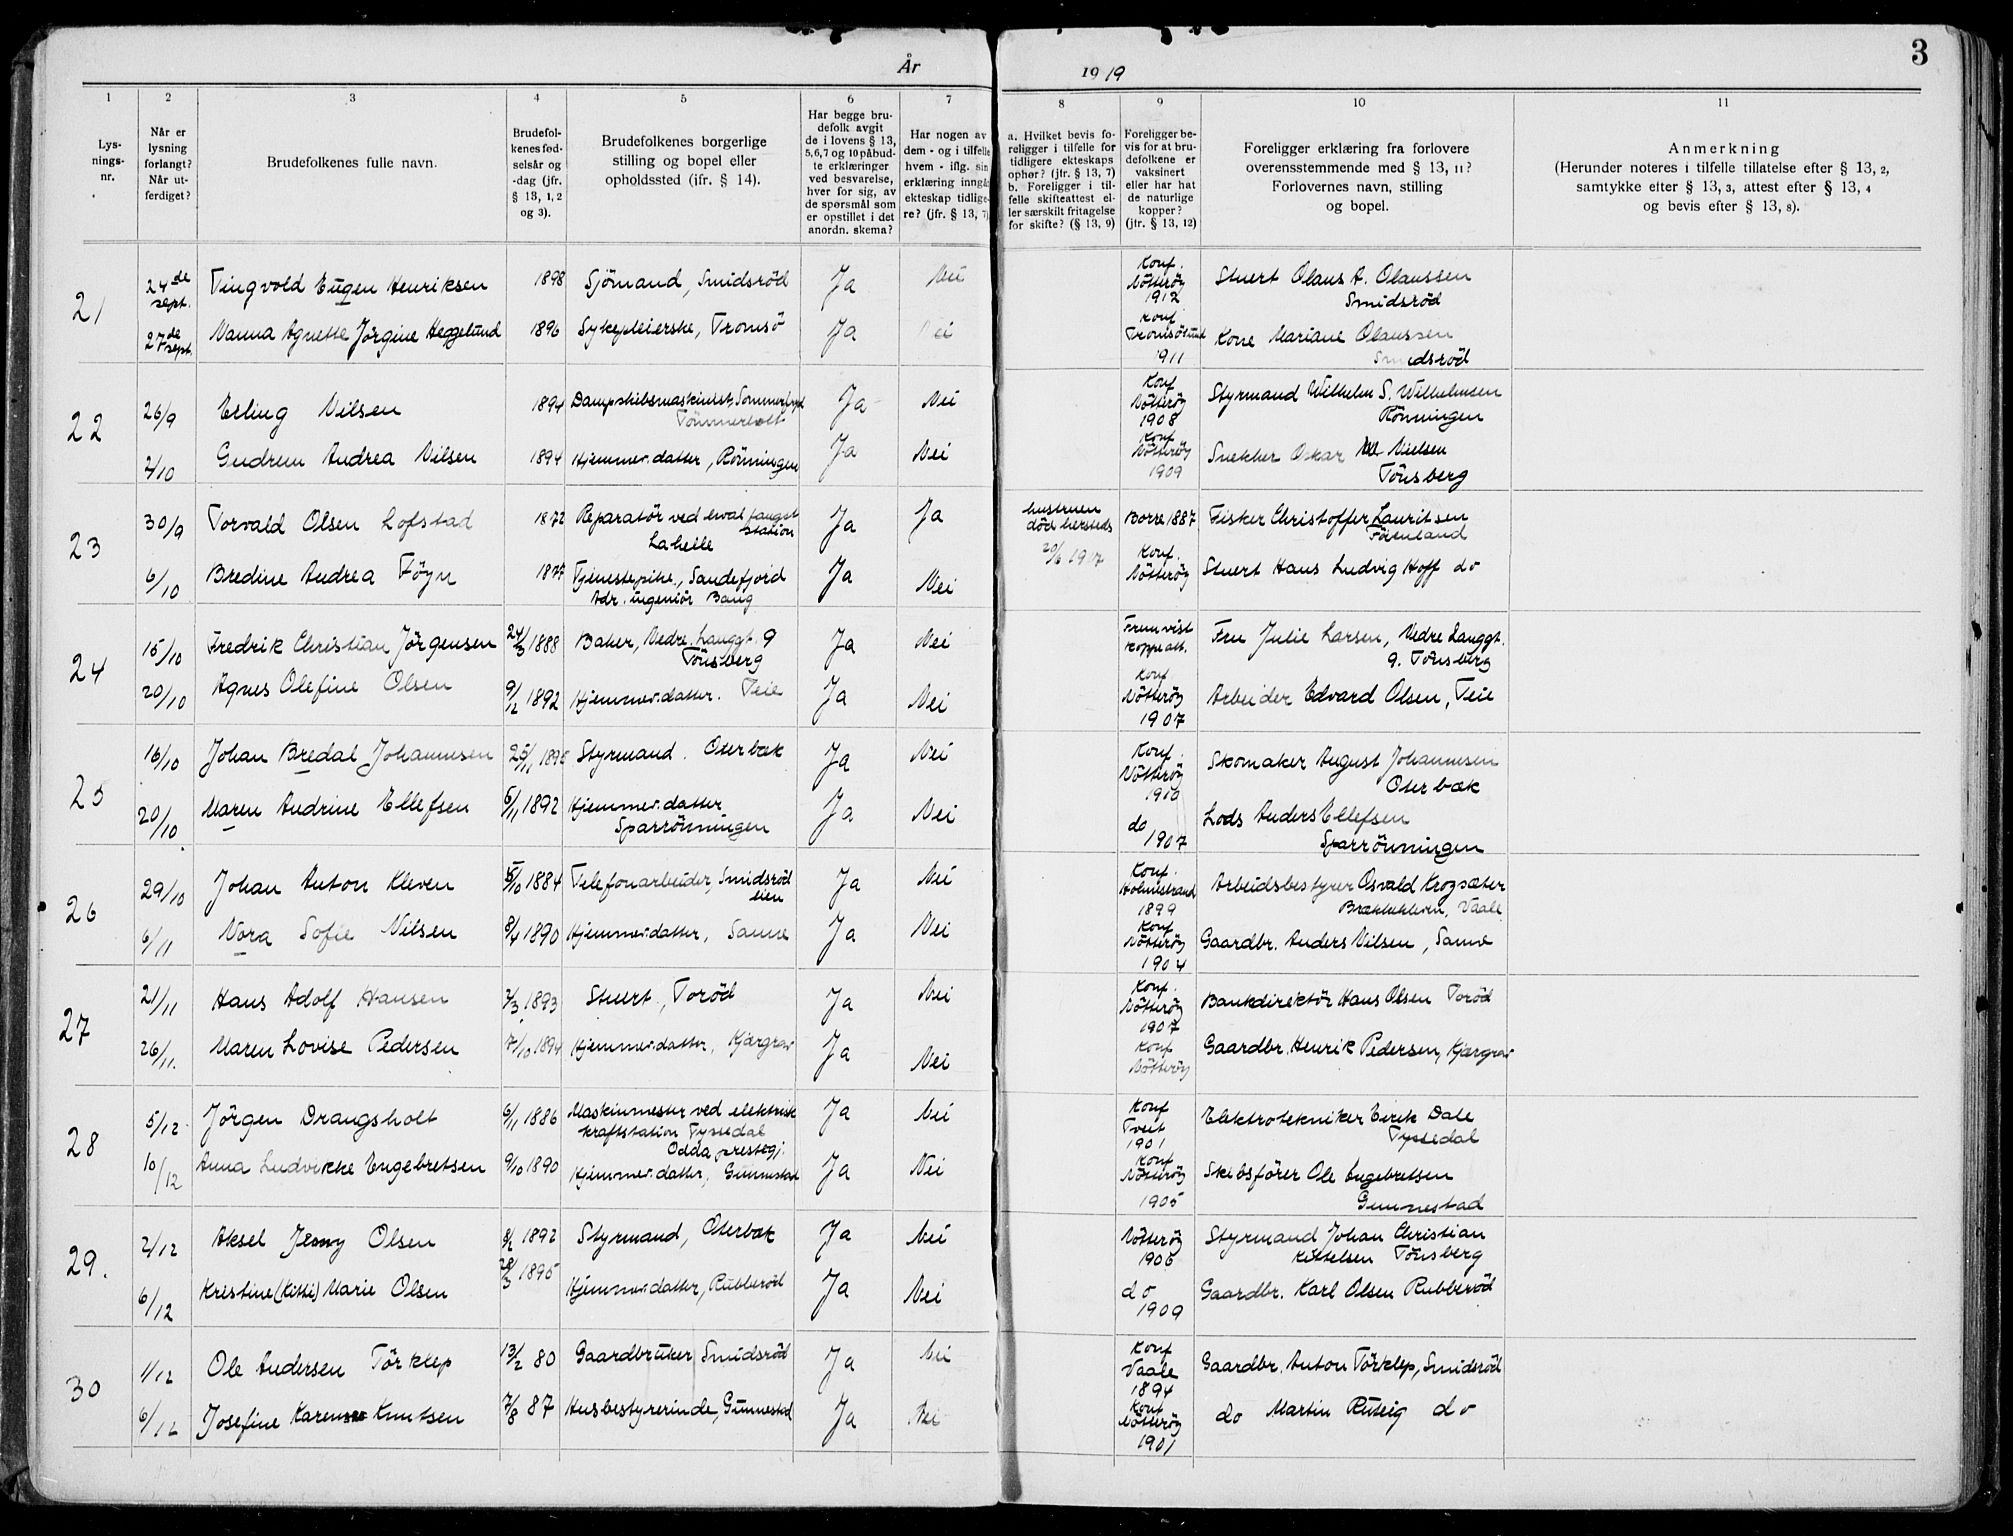 3
År 1919
1 2 3 4 5 6 7 8 9 10 11
Lys-
nings-
nr.
Når er
lysning
forlangt?
Når ut-
ferdiget?
Brudefolkenes fulle navn.
Brudefol-
kenes fød-
selsår og
-dag (jfr.
§ 13, 1, 2
og 3).
Brudefolkenes borgerlige
stilling og bopel eller
opholdssted (jfr. § 14).
Har begge bru-
defolk avgit
de i lovens § 13,
5,6,7 og 10 påbud-
te erklæringer
ved besvarelse,
hver for sig, av
de spørsmål som
er opstillet i det
anordn. skema?
Har nogen av
dem - og i tilfelle
hvem - iflg. sin
erklæring inngåt
ekteskap tidlige-
re? (jfr. § 13, 7)
a. Hvilket bevis fo-
religger i tilfelle for
tidligere ekteskaps
ophør? (jfr. § 13, 7)
b. Foreligger i til-
felle skifteattest el-
ler særskilt fritagelse
for skifte? (§ 13, 9)
Foreligger be-
vis for at bru-
defolkene er
vaksinert
eller har hat
de naturlige
kopper?
(jfr. § 13, 12)
Foreligger erklæring fra forlovere
overensstemmende med § 13, 11?
Forlovernes navn, stilling
og bopel.
Anmerkning
(Herunder noteres i tilfelle tillatelse efter § 13, 2,
samtykke efter § 13, 3, attest efter § 13, 4
og bevis efter § 13, 8).
21
24de sept. Tingvold Eugen Henriksen 1898 Sjömand, Smidsröd Ja Nei Konf. Nötteröy 1912 Stuert Olaus A. Olaussen
Smidsröd
27de sept. Nanna Agnette Jörgine Heggelund 1896 Sykepleierske, Tromsö Ja Nei Konf Tromsösund 1911 Kone Mariane Olaussen
Smidsröd
22
26/9 Erling Nilsen 1894 Dampskibsmaskinist, Ja Nei Konf Nötteröy 1908 Styrmand Wilhelm S. Wilhelmsen
Rönningen
2/10 Gudrun Andrea Nilsen 1894 Hjemmev. datter, Rönningen Ja Nei Konf Nötteröy 1909 Snekker Oskar Nielsen
Tönsberg
23
30/9 Torvald Olsen Lofstad 1872 Reparatör ved hvalfangst
station
Lahelle Ja Ja hustruen
död hersteds
20/6 1917 Borre 1887 Fisker Christoffer Lauritsen
Föienland
6/10 Bredine Andrea Föyn 1877 Tjenestepike, Sandefjord
Adr. ingeniör Bang Ja Nei Konf. Nötteröy Stuert Hans Ludvig Hoff do
24
15/10 Fredrik Christian Jörgensen 24/3 1888 Baker, Nedre Langgt. 9
Tönsberg Ja Nei Fremvist
koppeatt. Fru Julie Larsen, Nedre Langgt.
9. Tönsberg
20/10 Agnes Olefine Olsen 9/12 1892 Hjemmev. datter. Teie Ja Nei Konf Nötteröy 1907 Arbeider Edvard Olsen, Teie
25
16/10 Johan Bredal Johannesen 25/11 1895 Styrmand. Oterbæk Ja Nei Konf. Nötteröy 1910 Skomaker August Johannesen
Oterbæk
20/10 Maren Andrine Ellefsen 5/11 1892 Hjemmev. datter
Sparrönningen Ja Nei do 1907 Lods Anders Ellefsen
Sparrönningen
26
29/10 Johan Anton Kleven 5/10 1884 Telefonarbeider, Smidsröd
eien Ja Nei Konf. Holmestrand 1899 Arbeidsbestyrer Osvald Krogsæter
Brækkekleven, Vaale
6/11 Nora Sofie Nilsen 8/4 1890 Hjemmev. datter, Sanne Ja Nei Konf Nötteröy 1904 Gaardbr. Anders Nilsen, Sanne
27
21/11 Hans Adolf Hansen 2/3 1893 Stuert, Toröd Ja Nei Konf. Nötteröy 1907 Bankdirektör Hans Olsen Toröd
26/11. Maren Lovise Pedersen 7/10 1894 Hjemmev. datter, Kjærgrav Ja Nei Konf Nötteröy Gaardbr. Henrik Pedersen, Kjærgrav
28
5/12. Jörgen Drangsholt 6/11 1886 Maskinmester ved elektrisk
kraftstation Tyssedal
Odda prestegj. Ja Nei Konf Tveit 1901 Elektrotekniker Eirik Dale
Tyssedal
10/12 Anna Ludvikke Engebretsen 9/10 1890 Hjemmev. datter, Gunnestad Ja Nei Konf Nötteröy 1905 Skibsförer Ole Engebretsen
Gunnestad
29.
2/12 Aksel Jenny Olsen 8/2 1892 Styrmand, Oterbæk Ja Nei Nötteröy 1906 Styrmand Johan Christian
Kittelsen Tönsberg
6/12 Kristine (Kitti) Marie Olsen 28/3 1895 Hjemmev. datter, Rubberöd Ja Nei do 1909 Gaardbr. Karl Olsen Rubberöd
30
1/12 Ole Andersen Törklep 13/2 80 Gaardbruker Smidsröd Ja Nei Konf Vaale 1894 Gaardbr. Anton Törklep, Smidsröd
6/12 Josefine Karense Knutsen 7/8 87 Husbestyrerinde, Gunnestad Ja Nei Konf Nötteröy 1901 do Martin Rutsig do